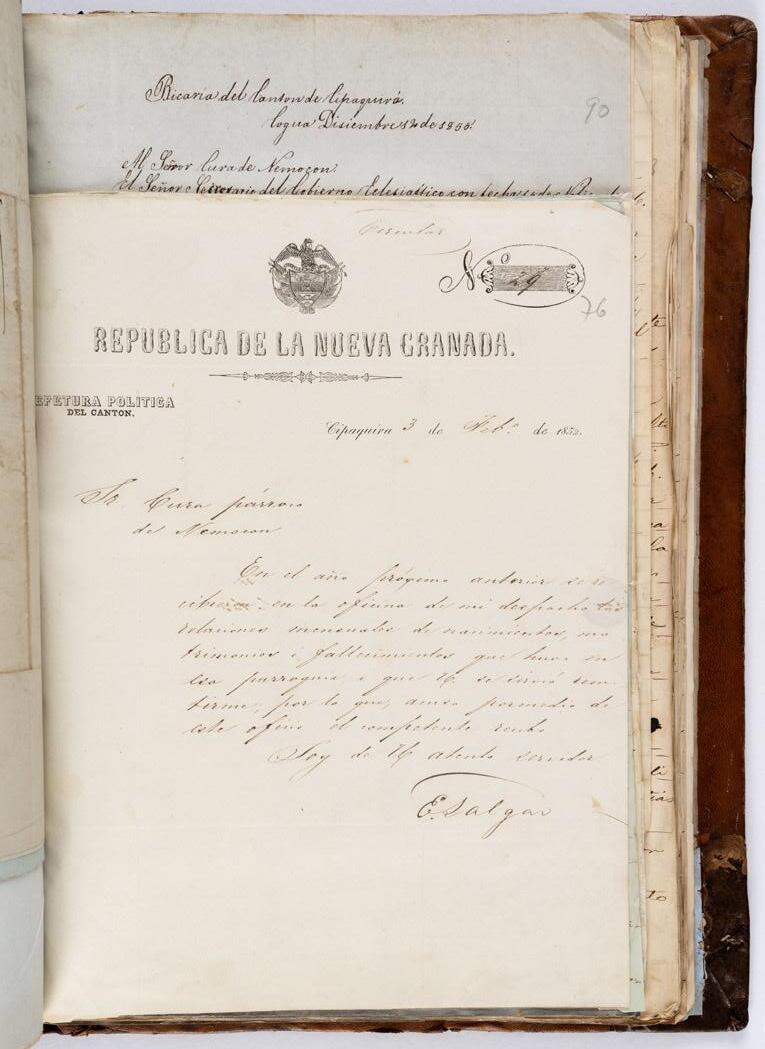 Bicaria del Canton de Cipaquirá.
Cogua Disiembre 12 de 1850.
90
Al Señor Cura de Nemocon.
El Señor Secretario del Gobierno Eclesiastico con fecha
Circular
Nº 29
76
REPUBLICA DE LA NUEVA GRANADA.
EFETURA POLITICA
DEL CANTON.
Cipaquira 3 de Febº de 1852.
Sr. Cura párroco
de Nemocon
En el año prógimo anterior se re
cibieron en la oficina de mi despacho las
relaciones mensuales de nacimientos, ma
trimonios i fallecimientos que hubo en
esa parroquia, i que U. se sirvió remi
tirme, por lo que, acuso por medio de
este oficio el competente recibo
Soy de U atento servidor
E. Salgar